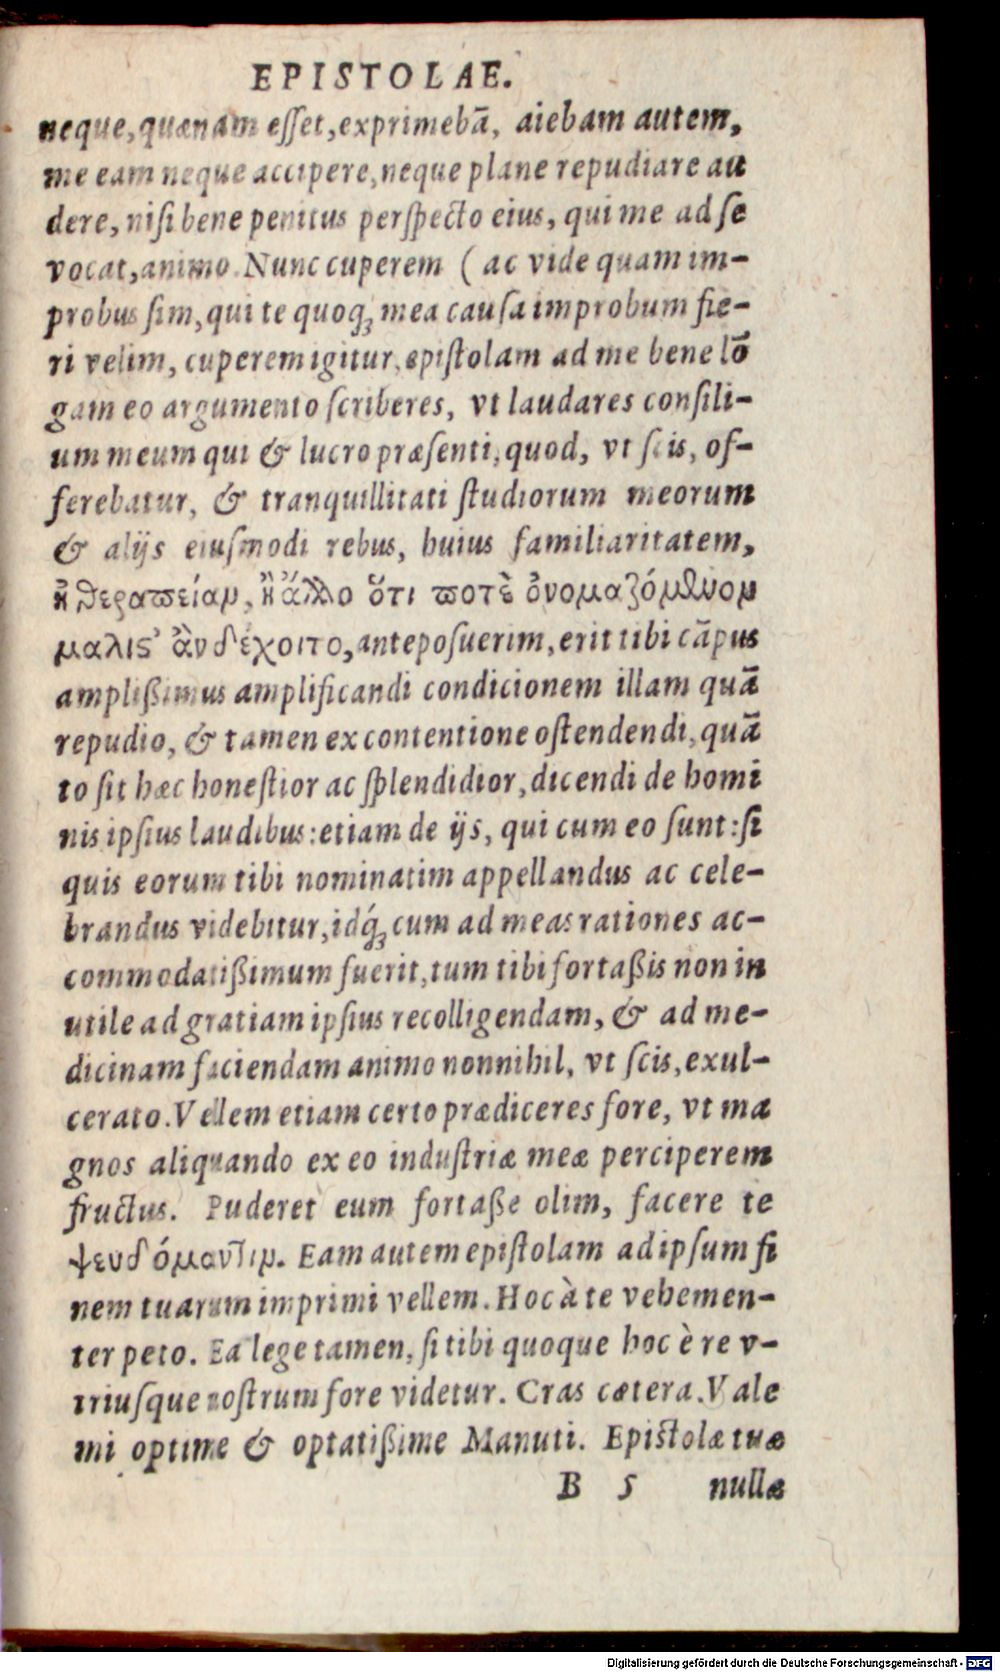 EPISTOLAE.
neque, quænam eſſet, exprimebā, aiebam autem,
me eam neque accipere, neque plane repudiare au
dere, niſi bene penitus perſpecto eius, qui me ad ſe
vocat, animo. Nunc cuperem ( ac vide quam im-
probus ſim, qui te quoqꝫ mea cauſa improbum fie-
ri velim, cuperem igitur, epiſtolam ad me bene lō
gam eo argumento ſcriberes, vt laudares conſili-
um meum qui & lucro præſenti, quod, vt ſcis, of-
ferebatur, & tranquillitati ſtudiorum meorum
& alijs eiuſmodi rebus, huius familiaritatem,
ἢ θεραπείαν, ἢ ἄλλο ὅτι ποτὲ ὀνομαζόμενον
μάλιϛ' ἂν δέχοιτο, antepoſuerim, erit tibi cāpus
amplißimus amplificandi condicionem illam quā
repudio, & tamen ex contentione oſtendendi, quā
to ſit hæc honeſtior ac ſplendidior, dicendi de homi
nis ipſius laudibus: etiam de ijs, qui cum eo ſunt: ſi
quis eorum tibi nominatim appellandus ac cele-
brandus videbitur, idq́ꝫ cum ad meas rationes ac-
commodatißimum fuerit, tum tibi fortaßis non in
utile ad gratiam ipſius recolligendam, & ad me-
dicinam faciendam animo nonnihil, vt ſcis, exul-
cerato. Vellem etiam certo prædiceres fore, vt ma
gnos aliquando ex eo induſtriæ meæ perciperem
fructus. Puderet eum fortaße olim, facere te
ψευδόμαντιν. Eam autem epiſtolam ad ipſum fi
nem tuarum imprimi vellem. Hoc à te vehemen-
ter peto. Ea lege tamen, ſi tibi quoque hoc è re v-
triuſque noſtrum fore videtur. Cras cætera. Vale
mi optime & optatißime Manuti. Epiſtolæ tuæ
B 5 nullæ
Digitalisierung gefördert durch die Deutsche Forschungsgemeinschaft - DFG